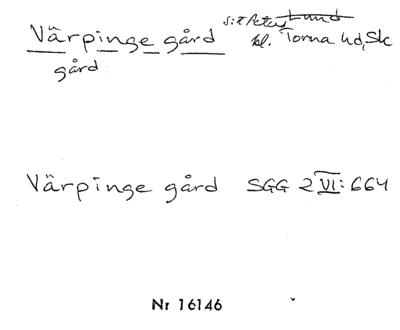 Värpinge gård S:t Peters Lund
gård kl. Torna hd, Sk
Värpinge gård SGG 2 VI: 664
Nr 16146